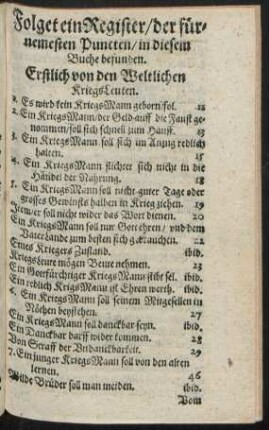 Folget ein Register/der für-
nemesten Puncten/in diesem
Buche befunden.
Erstlich von den Weltlichen
KriegsLeuten.
Es wird kein KriegsMann geborn/fol. 12
2. Ein KriegsMann/der Geld auff die Faust ge-
nommen/soll sich schnell zum Hauff. 13
3. Ein KriegsMann soll sich im Anzug redlich
halten. 15
4. Ein KriegsMann flichter sich nicht in die
Händel der Nahrung. 18
5. Ein KriegsMann soll nicht guter Tage oder
grosses Gewinsts halben in Krieg ziehen. 19
Jemver soll nicht wider das Wort dienen. 20
Ein KriegsMann soll nur Gott ehren/vnd dem
Vaterlande zum besten sich gebrauchen. 22
Eines Kriegers Zustand. ibid.
KriegsLeute mögen Beute nehmen. 23
Ein Gottfürchtiger KriegsMann stibt sel. ibid.
Ein redlich KrigsMann ist Ehren werth. ibid.
6. Ein KriegsMann soll seinem Mitgesellen in
Nöthen beystehen. 27
Ein KriegsMann soll danckbar seyn. ibid.
Ein Danckbar darff wider kommen. 28
Von Straff der Vndanckbarkeit. 29
7. Ein junger KriegsMann soll von den alten
lernen. 46
Wilde Brüder soll man meiden. ibid.
Vom